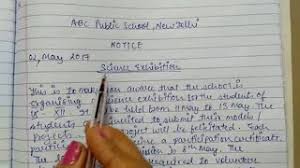 ABC Public School, New Delhi
NOTICE
02, May 2017
Science Exhibition
This is to make you aware that the school is
organising science exhibition for the student of
- XII. held from 11 May to 15 May. The
students submit their models /
projects. project will be felicitated. Each
participation certificate
May. The
required to volunteer